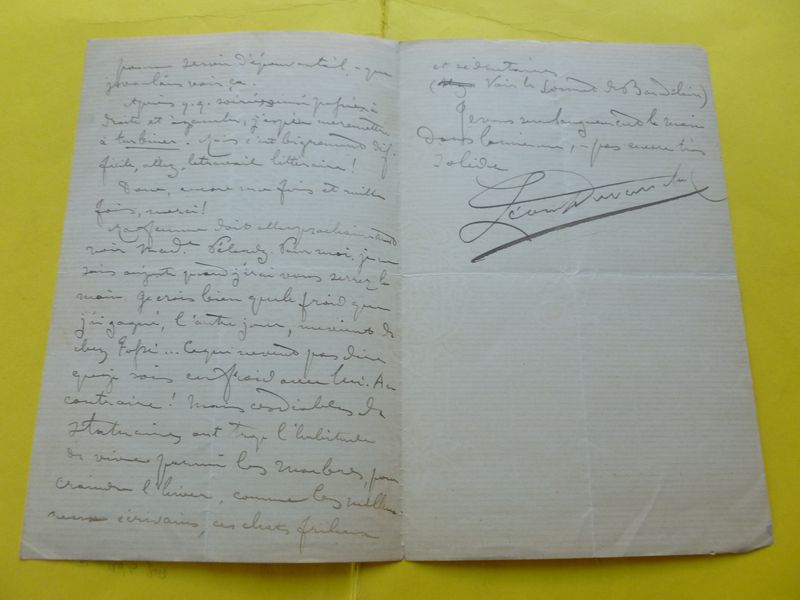 servir d'épouvantail, - que
vois ça.
Après q.q. soirées ainsi passées à
droite et à gauche, j'espère me remettre
à turbiner. Mais c'est bigrement dif-
ficile, allez, le travail littéraire!
Donc, encore une fois et mille
fois, merci!
Ma femme doit aller prochainement
voir Mad. Pour moi, je ne
sais au juste quand j'irai vous serrer la
main. Je crois bien que le froid que
j'ai gagné, l'autre jour, me vient de
chez ... Ce qui ne veut pas dire
que je sois en froid avec lui. Au
contraire! Mais ces diables de
statuaires ont trop l'habitude
de vivre parmi les marbres, pour
craindre l'hiver, comme les
écrivains, ces chats frileux
et sédentaires
(Voir le Sonnet de Baudelaire)
Je vous serre longuement la main
dans la mienne, - pas encore très
solide
Léon